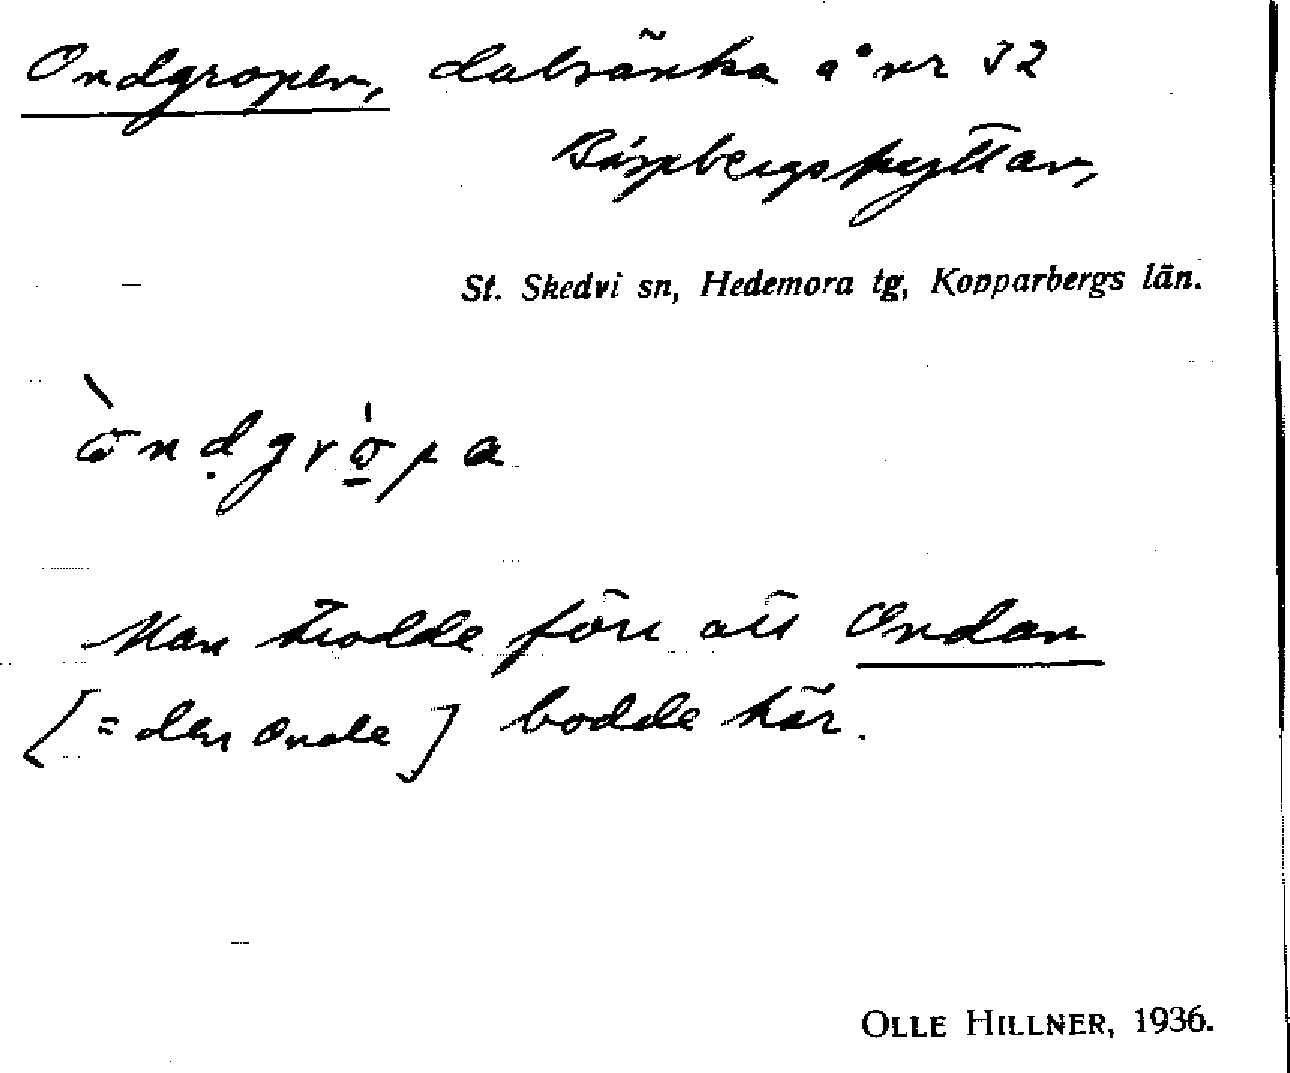 Ondgropen, dalsänka å nr 32
Bispbergshyttan,
St. Skedvi sn, Hedemora tg, Kopparbergs län.
Man trodde förr att Ondan
[= den onde] bodde här.
OLLE HILLNER, 1936.